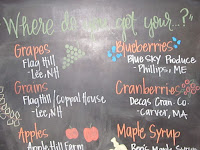 Where do you get your...?"
Grapes
Flag Hill
-Lee, NH
Grains
Flag Hill / Coppal House
-Lee, NH
Apples
Apple Hill Farm
Blueberries
Blue Sky Produce
-Phillips, ME
Cranberries
Decas Cran. Co.
-Carver, MA
Maple Syrup
Ben's Maple Syrup